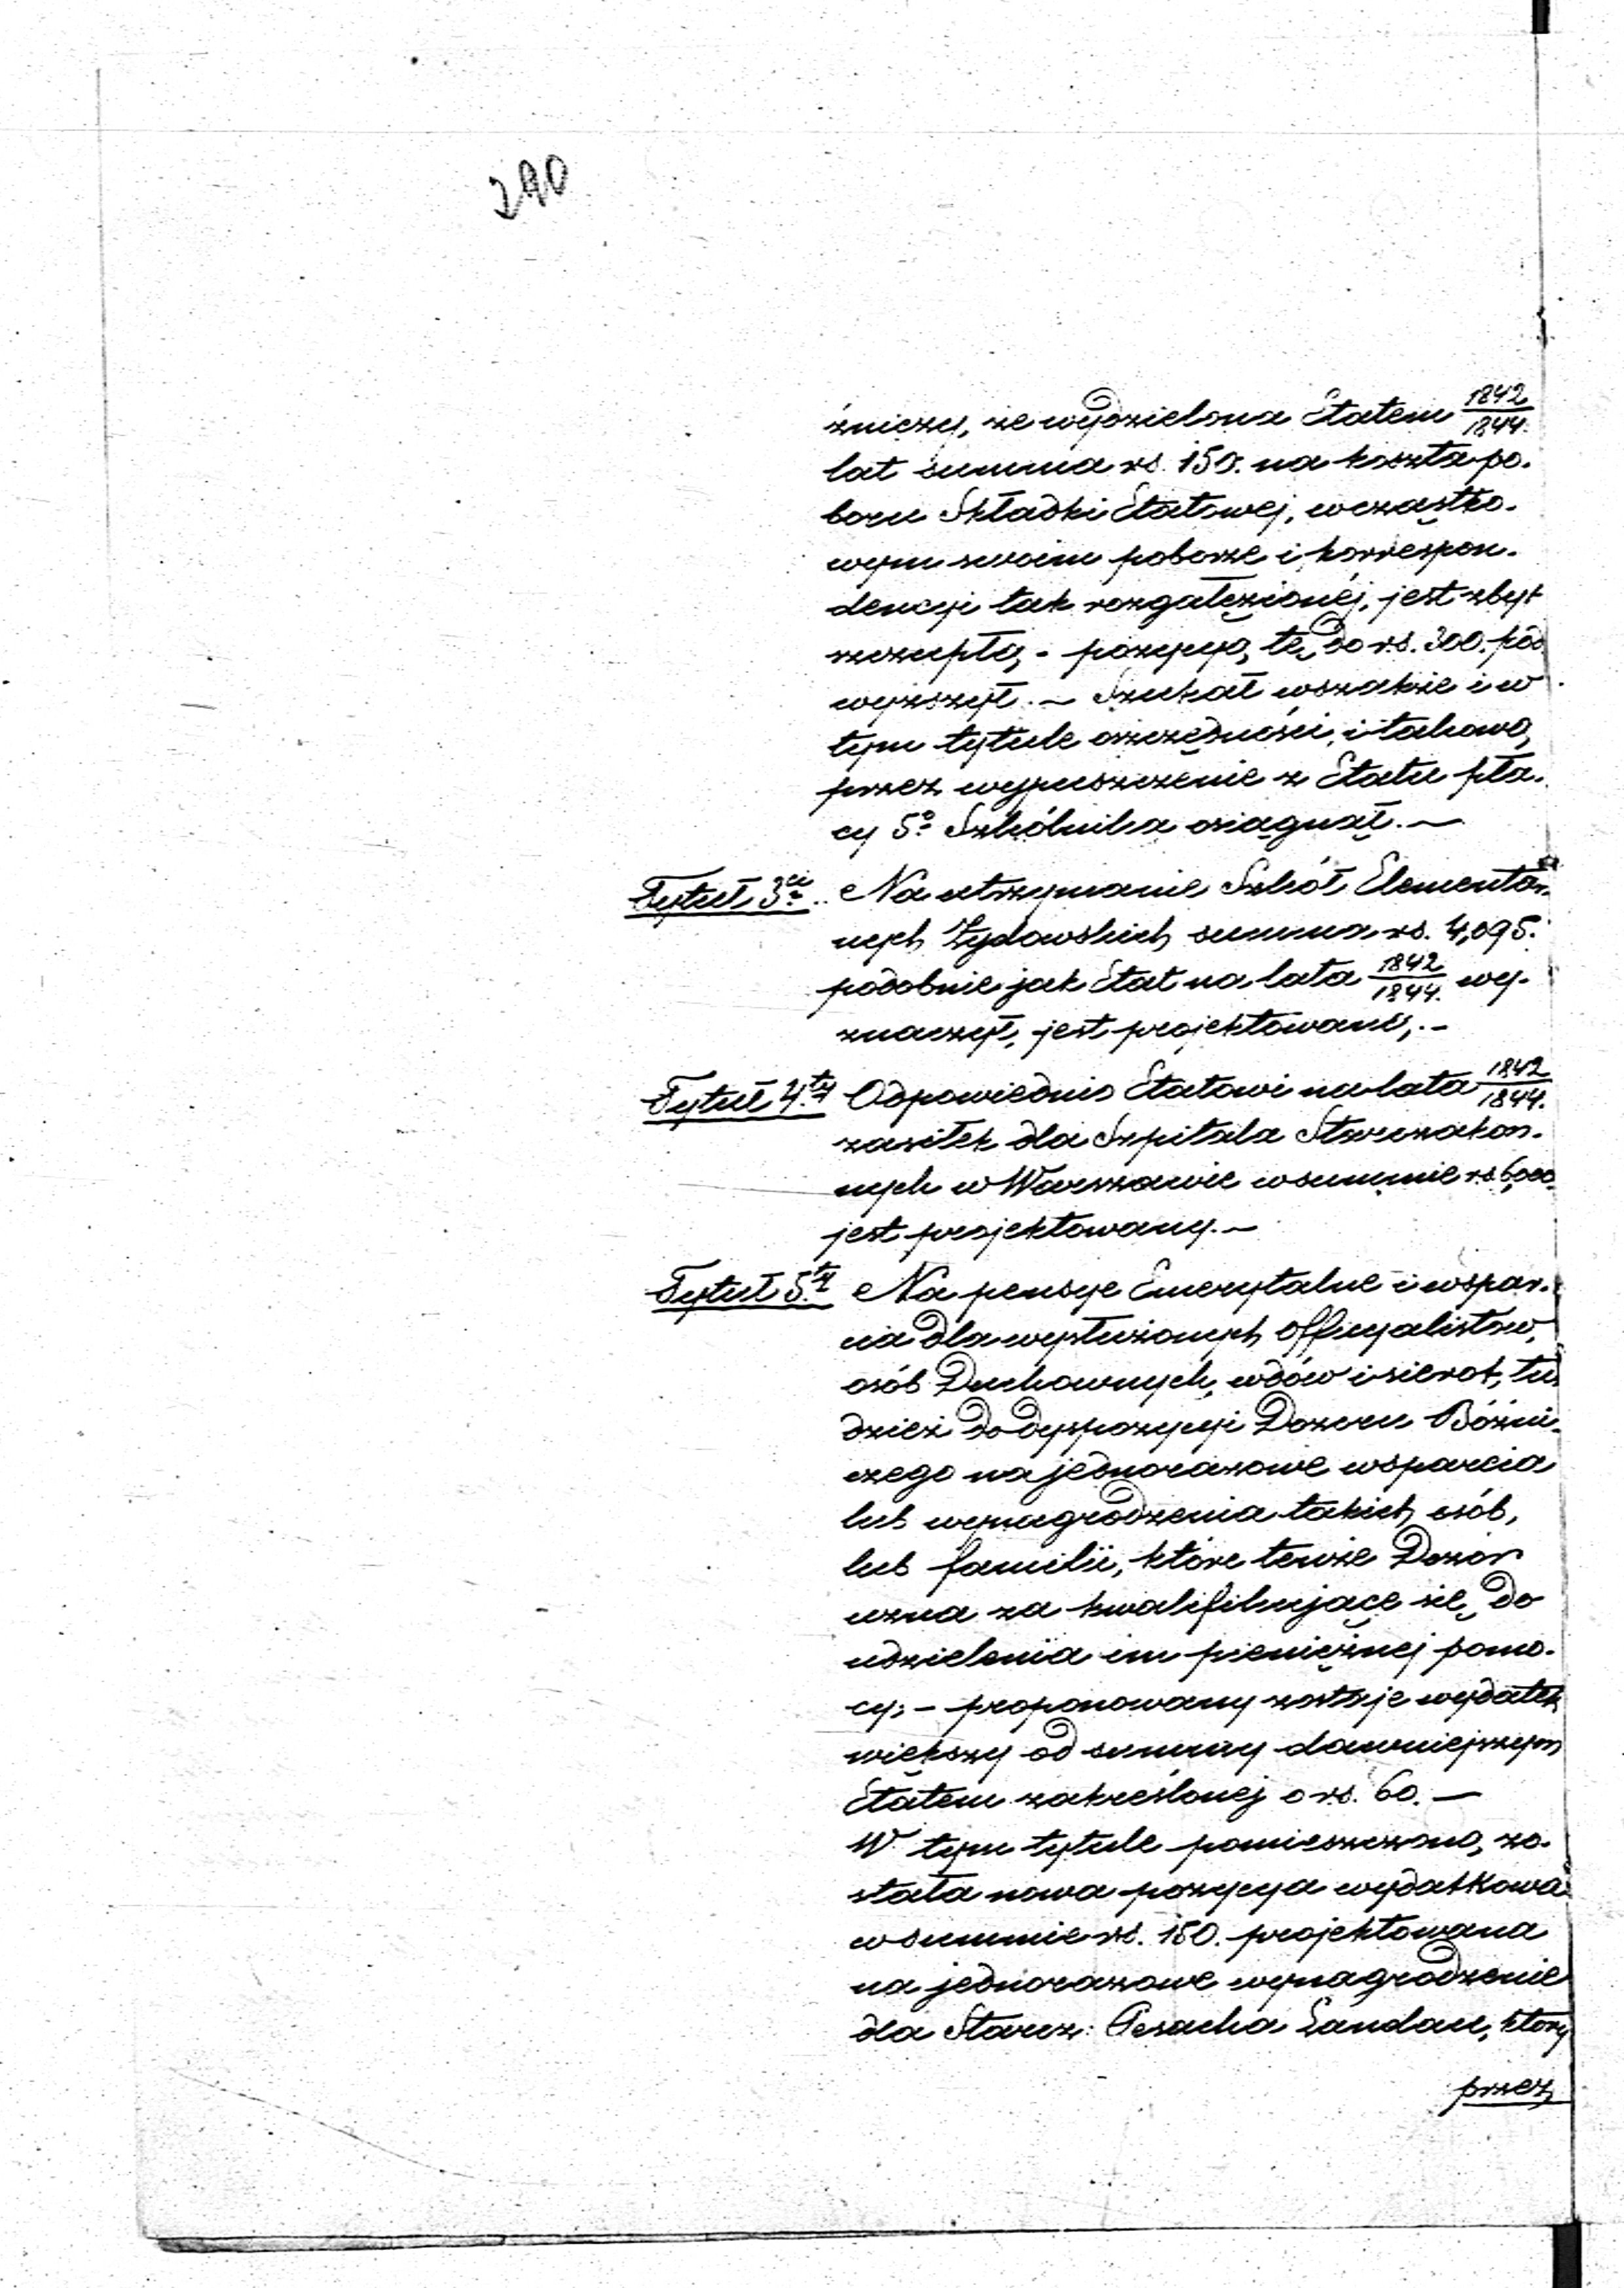 290
źniczy, że wydzielona Etatem 1842/1844.
lat summa rs. 150. na koszta po-
boru Składki Etatowej, w cząstko-
wym swoim poborze i korrespon-
dencyi tak rozgałęzionéj, jest zbyt
szczupłą, - pozycyą tę do rs. 300. pod
wyższył. — Szukał wszakże i w
tym tytule oszczędności, i takową
przez wypuszczenie z Etatu pła-
cy 5o Szkólnika osiągnął. —
Tytuł 3ci. Na utrzymanie Szkół Elementar-
nych Żydowskich summa rs. 4,095.
podobnie jak Etat na lata 1842/1844. wy-
znaczył, jest projektowaną. -
Tytuł 4ty Odpowiednio Etatowi na lata 1842/1844.
zasiłek dla Szpitala Starozakon-
nych w Warszawie w summie rs 6,000
jest projektowany. —
Tytuł 5ty Na pensye Emerytalne i wspar-
cia dla wysłużonych officyalistów,
osób Duchownych, wdów i sierot, tu-
dzież do dyspozycyi Dozoru Bóżni-
czego na jednorazowe wsparcia
lub wynagrodzenia takich osób,
lub familii, które tenże Dozór
uzna za kwalifikujące się do
udzielenia im pieniężnej pomo-
cy; - proponowany zostaje wydatek
większy od summy dawniejszym
Etatem zakreślonej o rs. 60. —
W tym tytule pomieszczoną zo-
stała nowa pozycya wydatkowa
w summie rs. 150. projektowana
na jednorazowe wynagrodzenie
dla Staroz: Pesacha Landau, który
przez